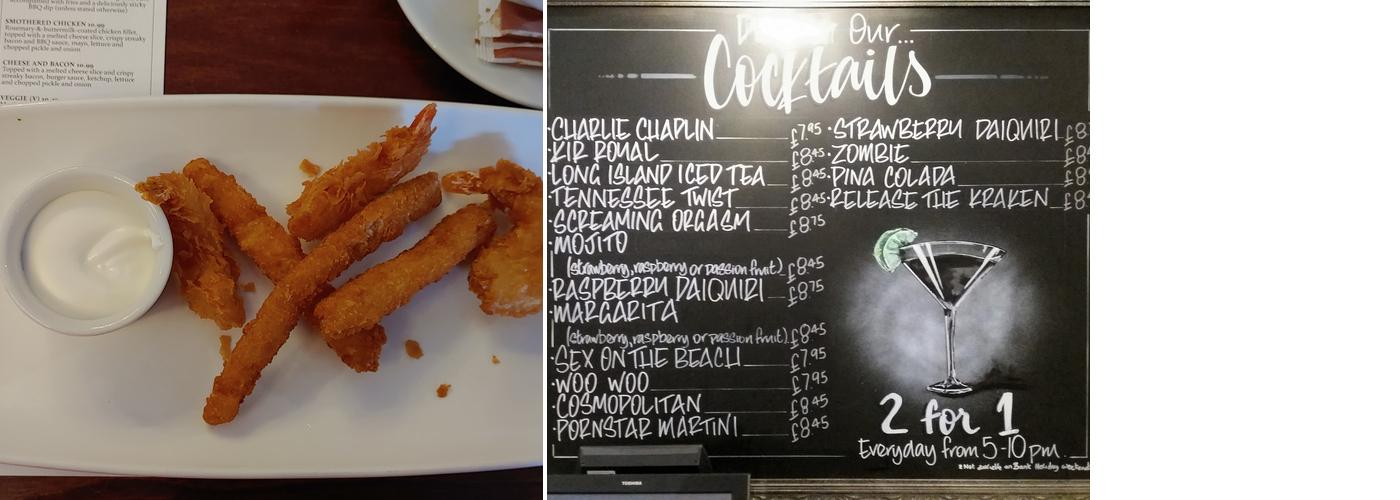 accompanied with fries and a deliciously sticky
BBQ dip (unless stated otherwise)
SMOTHERED CHICKEN 10.99
Rosemary-&-buttermilk-coated chicken fillet,
topped with a melted cheese slice, crispy streaky
bacon and BBQ sauce, mayo, lettuce and
chopped pickle and onion
CHEESE AND BACON 10.99
Topped with a melted cheese slice and crispy
streaky bacon, burger sauce, ketchup, lettuce
and chopped pickle and onion
VEGGIE (V)
Our...
Cocktails
·CHARLIE CHAPLIN £7.95
·KIR ROYAL £8.45
·LONG ISLAND ICED TEA £8.45
·TENNESSEE TWIST £8.45
·SCREAMING ORGASM £8.75
·MOJITO
(strawberry, raspberry or passion fruit) £8.45
·RASPBERRY DAIQUIRI £8.75
·MARGARITA
(strawberry, raspberry or passion fruit) £8.45
·SEX ON THE BEACH £7.95
·WOO WOO £7.95
·COSMOPOLITAN £8.45
·PORNSTAR MARTINI £8.45
·STRAWBERRY DAIQUIRI £8
·ZOMBIE £8
·PINA COLADA £8
·RELEASE THE KRAKEN £8
2 for 1
Everyday from 5-10pm
*Not available on Bank Holiday weekends
TOSHIBA